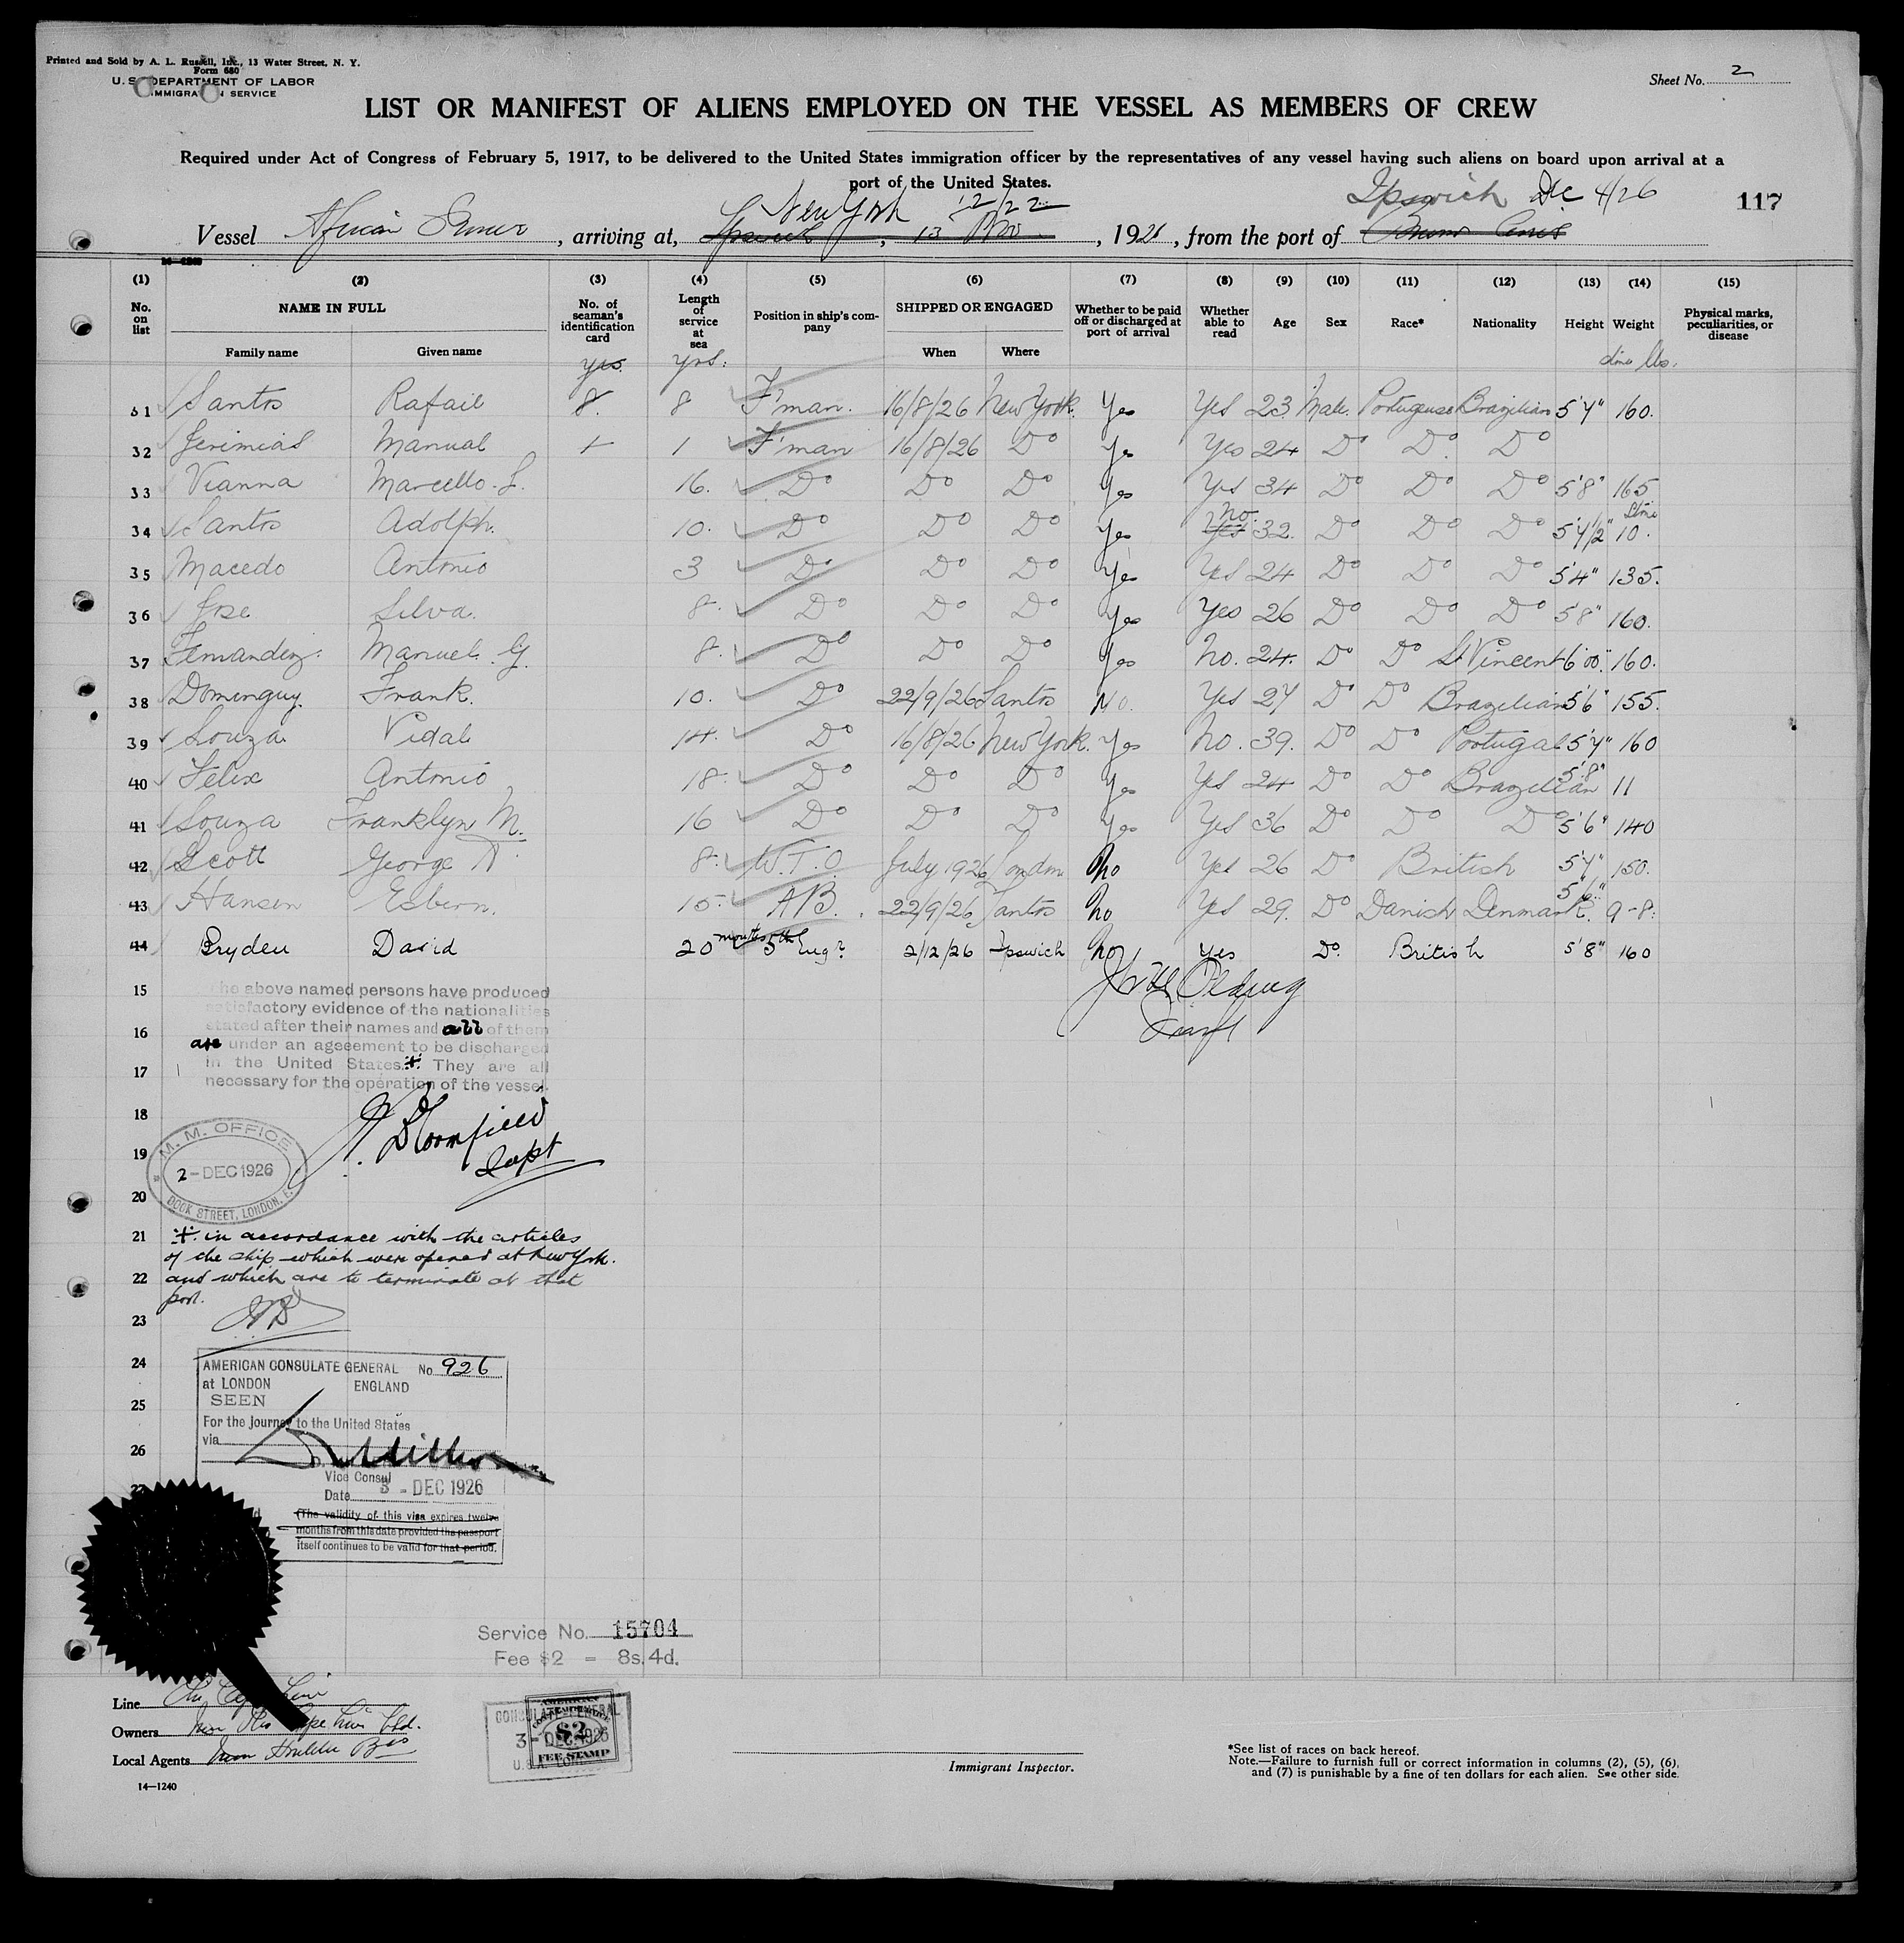 Printed and Sold by A. L. Russell, Inc., 13 Water Street, N. Y.
Form 680
U. S. DEPARTMENT OF LABOR
IMMIGRATION SERVICE
Sheet No. 2
LIST OR MANIFEST OF ALIENS EMPLOYED ON THE VESSEL AS MEMBERS OF CREW
Required under Act of Congress of February 5, 1917, to be delivered to the United States immigration officer by the representatives of any vessel having such aliens on board upon arrival at a
port of the United States.
New York 12/22 Ipswich Dec 4/26 117
Vessel African , arriving at, Ipswich , 13 Nov , 1926 , from the port of
(1) (2) (3) (4) (5) (6) (7) (8) (9) (10) (11) (12) (13) (14) (15)
No. on list NAME IN FULL Family name Given name No. of seaman's identification card Length of service at sea Position in ship's company SHIPPED OR ENGAGED When Where Whether to be paid off or discharged at port of arrival Whether able to read Age Sex Race* Nationality Height Weight Physical marks, peculiarities, or disease
yrs. yrs. lbs.
31 Santos Rafael 8. 8 F'man. 16/8/26 New York. Yes Yes 23 Male. Portuguese Brazilian 5'7" 160.
32 Jerimias Manual 1 1 F'man 16/8/26 Do Yes Yes 24 Do Do Do
33 Vianna Marcello. L. 16. Do Do Do Yes Yes 34 Do Do Do 5'8" 165
34 Santos Adolph. 10. Do Do Do Yes Yes No. 32. Do Do Do 5'4 1/2" 10. Stone
35 Macedo Antonio 3 Do Do Do Yes Yes 24 Do Do Do 5'4" 135.
36 Jose Silva. 8. Do Do Do Yes Yes 26 Do Do Do 5'8" 160.
37 Fernandez. Manuel. G. 8. Do Do Do Yes No. 24. Do Do St Vincent 6'00" 160.
38 Dominguy. Frank. 10. Do 22/9/26 Santos No. Yes 27 Do Do Brazilian 5'6" 155.
39 Souza Vidal 14. Do 16/8/26 New York. Yes No. 39. Do Do Portugal 5'7" 160
40 Felix Antonio 18. Do Do Do Yes Yes 24 Do Do Brazilian 5'8" 11
41 Souza Franklyn M. 16 Do Do Do Yes Yes 36 Do Do Do 5'6" 140
42 Scott George 8. W.T.O. July 1926 London No Yes 26 Do British 5'7" 150.
43 Hansen Esbern. 15. A.B. 22/9/26 Santos No Yes 29. Do Danish Denmark. 5'6" 9-8.
44 Bryden David 20 months 5th Engr 2/12/26 Ipswich No Yes Do. British 5'8" 160
15
The above named persons have produced
satisfactory evidence of the nationalities
stated after their names and all of them
16
are under an ageeement to be discharged
in the United States.+. They are all
17
necessary for the operation of the vessel.
18
J. Bloomfield
19
Supt
M. M. OFFICE
2 - DEC 1926
DOCK STREET, LONDON. E.
20
21 + in accordance with the articles
of the ship which were opened at New York.
22 and which are to terminate at that
port.
23
24
AMERICAN CONSULATE GENERAL No. 926
at LONDON ENGLAND
25
SEEN
For the journey to the United States
26
via
Vice Consul
27
Date 3 - DEC 1926
(The validity of this visa expires twelve
months from this date provided the passport
itself continues to be valid for that period.
Service No. 15704
Fee $2 = 8s. 4d.
Line
Owners
Local Agents
14—1240
AMERICAN
CONSULATE GENERAL
$2
3 - DEC 1926
FEE STAMP
Immigrant Inspector.
*See list of races on back hereof.
Note.—Failure to furnish full or correct information in columns (2), (5), (6),
and (7) is punishable by a fine of ten dollars for each alien. See other side.